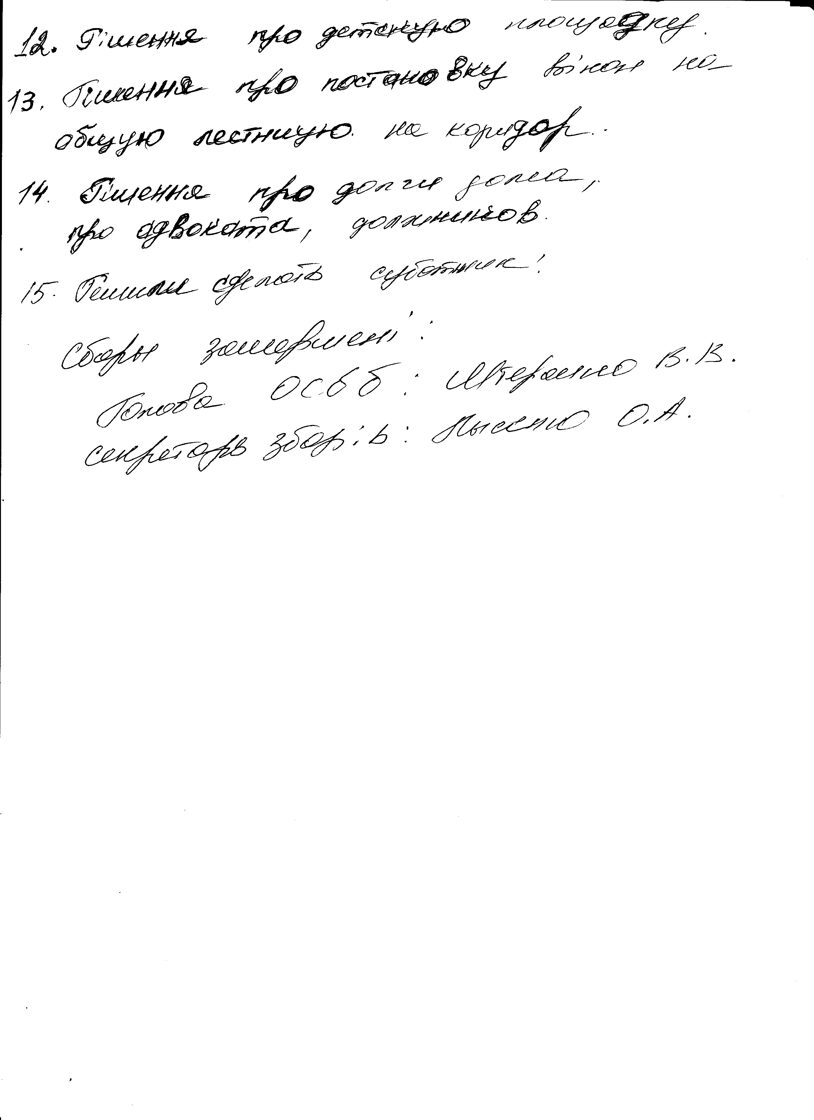 12. Рішення про детскую площадку.
13. Рішення про постановку вікон на
общую лестницую. на коридор..
14. Рішення про долги дома,
про адвоката, должников.
15. Решили сделать суботник!
Сборы завершені:
Голова ОСББ: В.В.
секретарь зборів: О.А.